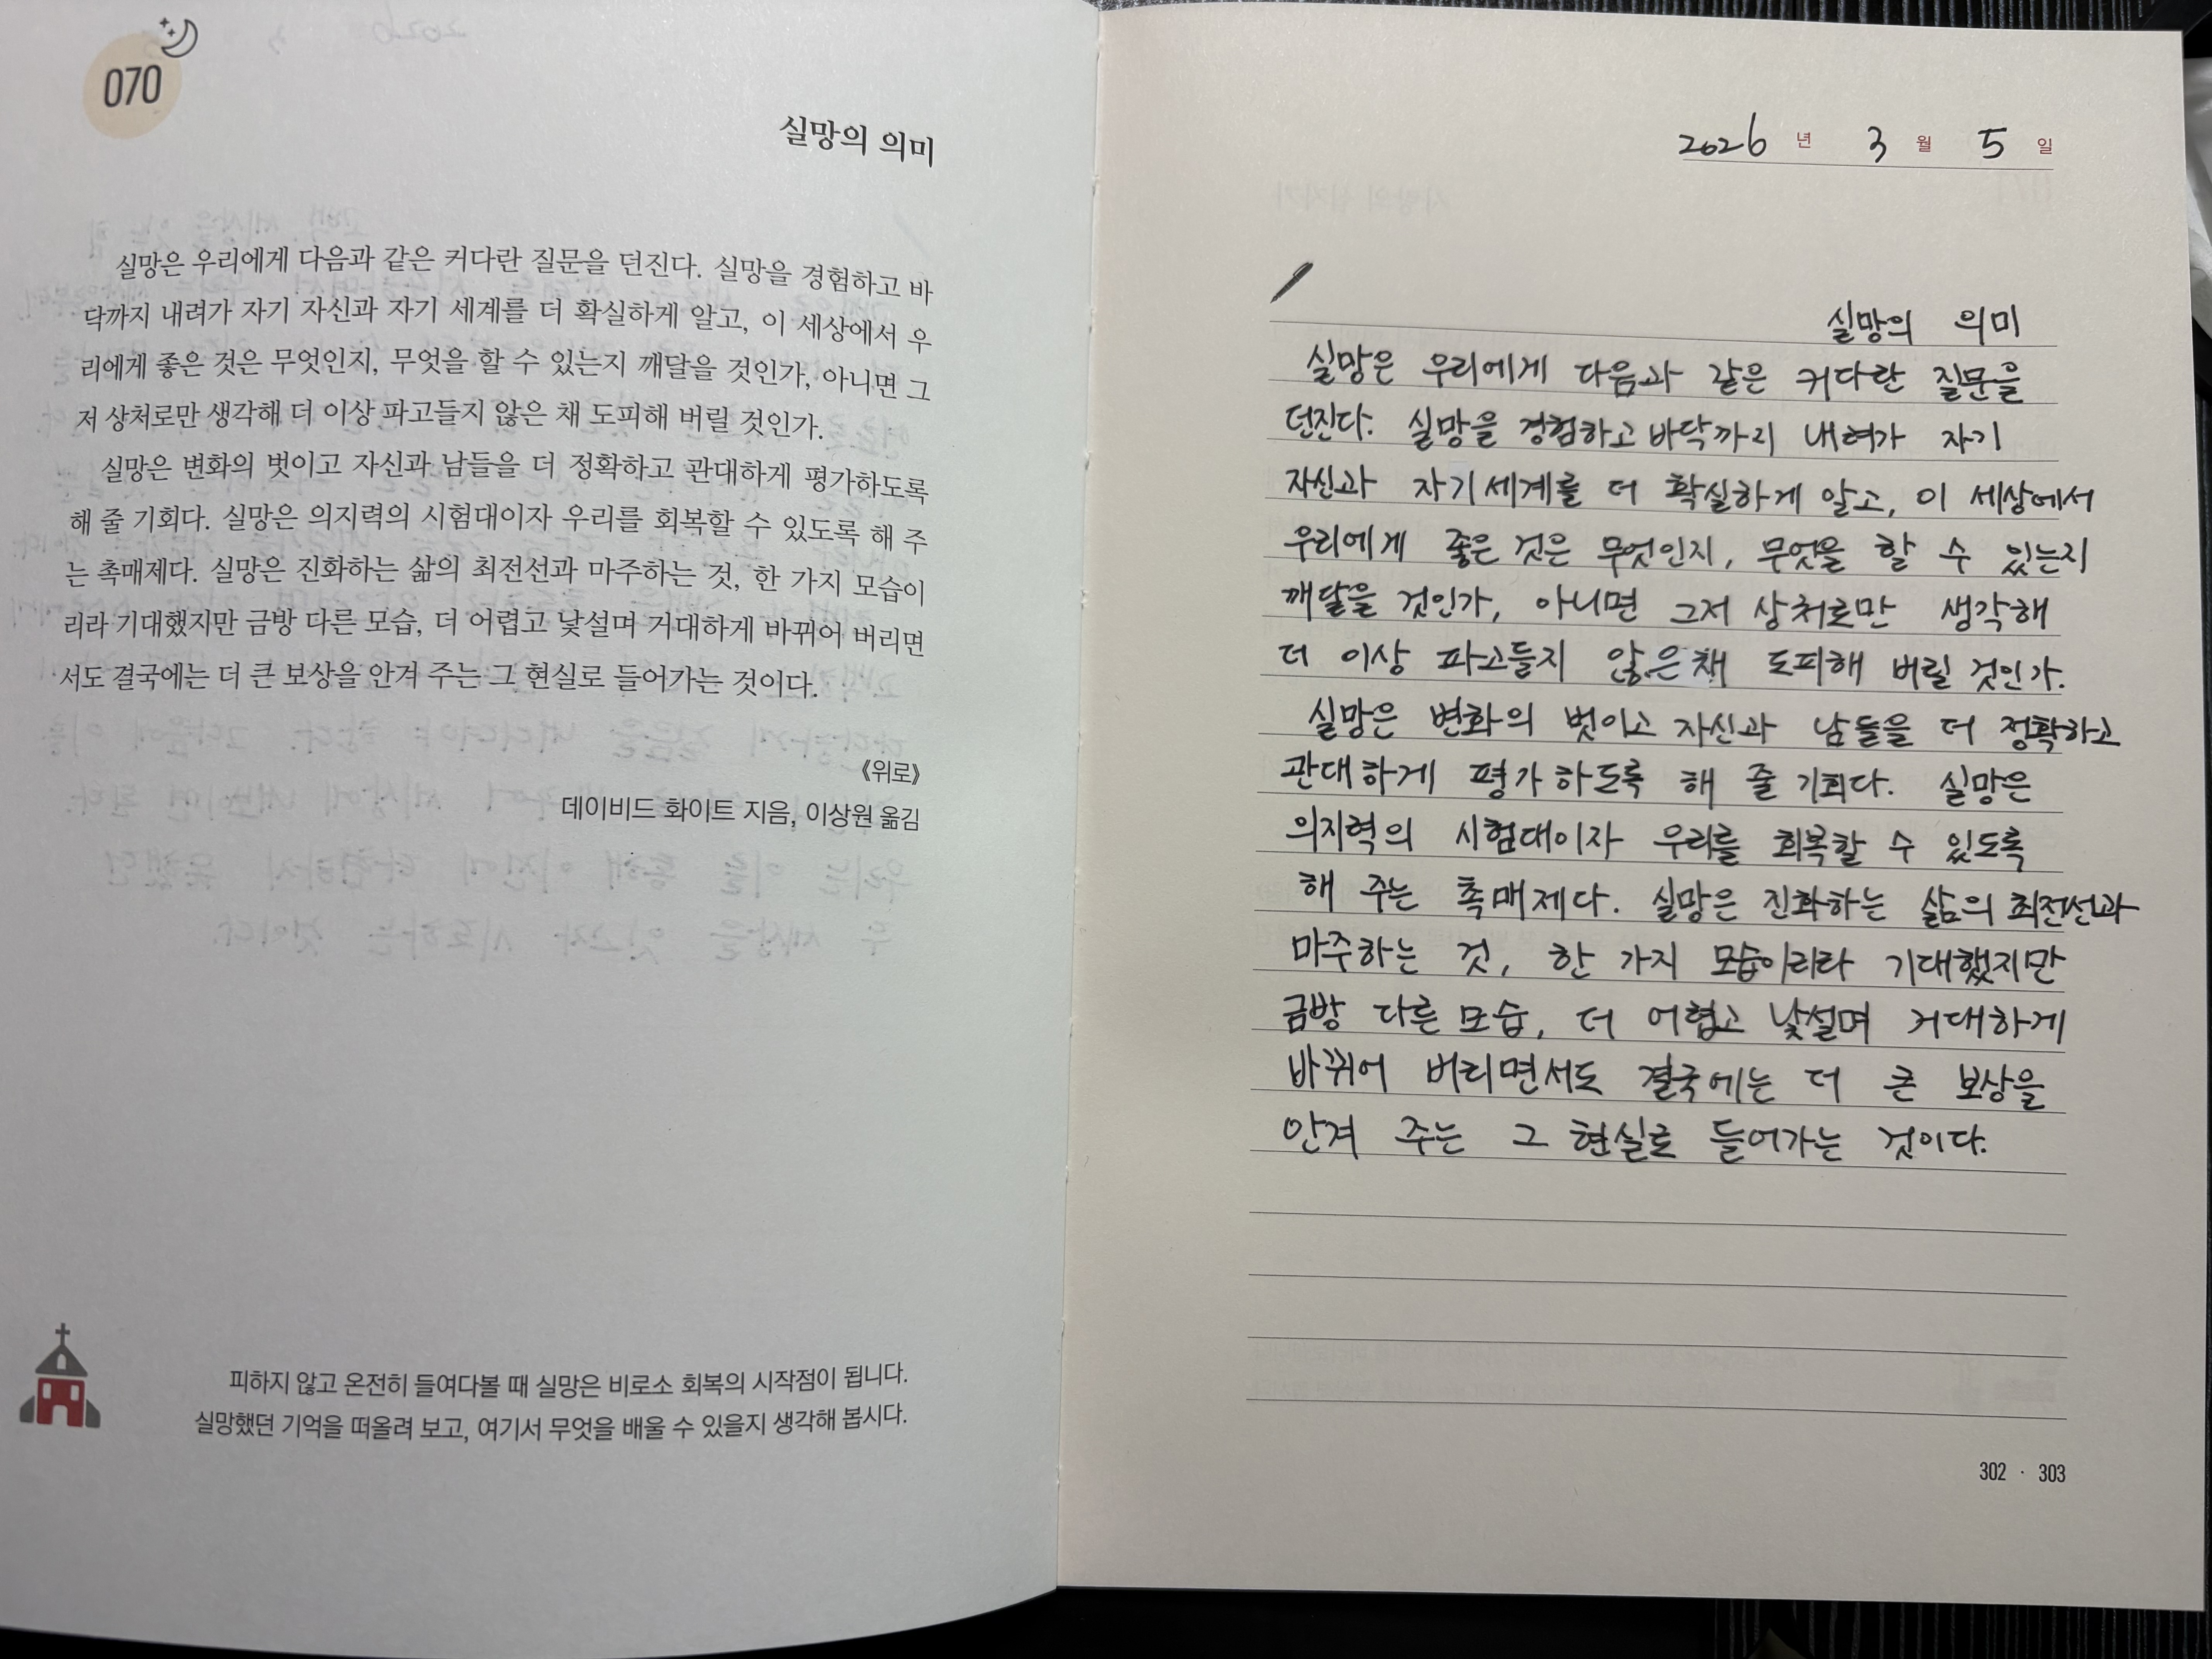 070
실망의 의미
실망은 우리에게 다음과 같은 커다란 질문을 던진다. 실망을 경험하고 바
닥까지 내려가 자기 자신과 자기 세계를 더 확실하게 알고, 이 세상에서 우
리에게 좋은 것은 무엇인지, 무엇을 할 수 있는지 깨달을 것인가, 아니면 그
저 상처로만 생각해 더 이상 파고들지 않은 채 도피해 버릴 것인가.
실망은 변화의 벗이고 자신과 남들을 더 정확하고 관대하게 평가하도록
해 줄 기회다. 실망은 의지력의 시험대이자 우리를 회복할 수 있도록 해 주
는 촉매제다. 실망은 진화하는 삶의 최전선과 마주하는 것, 한 가지 모습이
리라 기대했지만 금방 다른 모습, 더 어렵고 낯설며 거대하게 바뀌어 버리면
서도 결국에는 더 큰 보상을 안겨 주는 그 현실로 들어가는 것이다.
《위로》
데이비드 화이트 지음, 이상원 옮김
피하지 않고 온전히 들여다볼 때 실망은 비로소 회복의 시작점이 됩니다.
실망했던 기억을 떠올려 보고, 여기서 무엇을 배울 수 있을지 생각해 봅시다.
2026 년 3 월 5 일
실망의 의미
실망은 우리에게 다음과 같은 커다란 질문을
던진다. 실망을 경험하고 바닥까지 내려가 자기
자신과 자기 세계를 더 확실하게 알고, 이 세상에서
우리에게 좋은 것은 무엇인지, 무엇을 할 수 있는지
깨달을 것인가, 아니면 그저 상처로만 생각해
더 이상 파고들지 않은 채 도피해 버릴 것인가.
실망은 변화의 벗이고 자신과 남들을 더 정확하고
관대하게 평가하도록 해 줄 기회다. 실망은
의지력의 시험대이자 우리를 회복할 수 있도록
해 주는 촉매제다. 실망은 진화하는 삶의 최전선과
마주하는 것, 한 가지 모습이리라 기대했지만
금방 다른 모습, 더 어렵고 낯설며 거대하게
바뀌어 버리면서도 결국에는 더 큰 보상을
안겨 주는 그 현실로 들어가는 것이다.
302 · 303